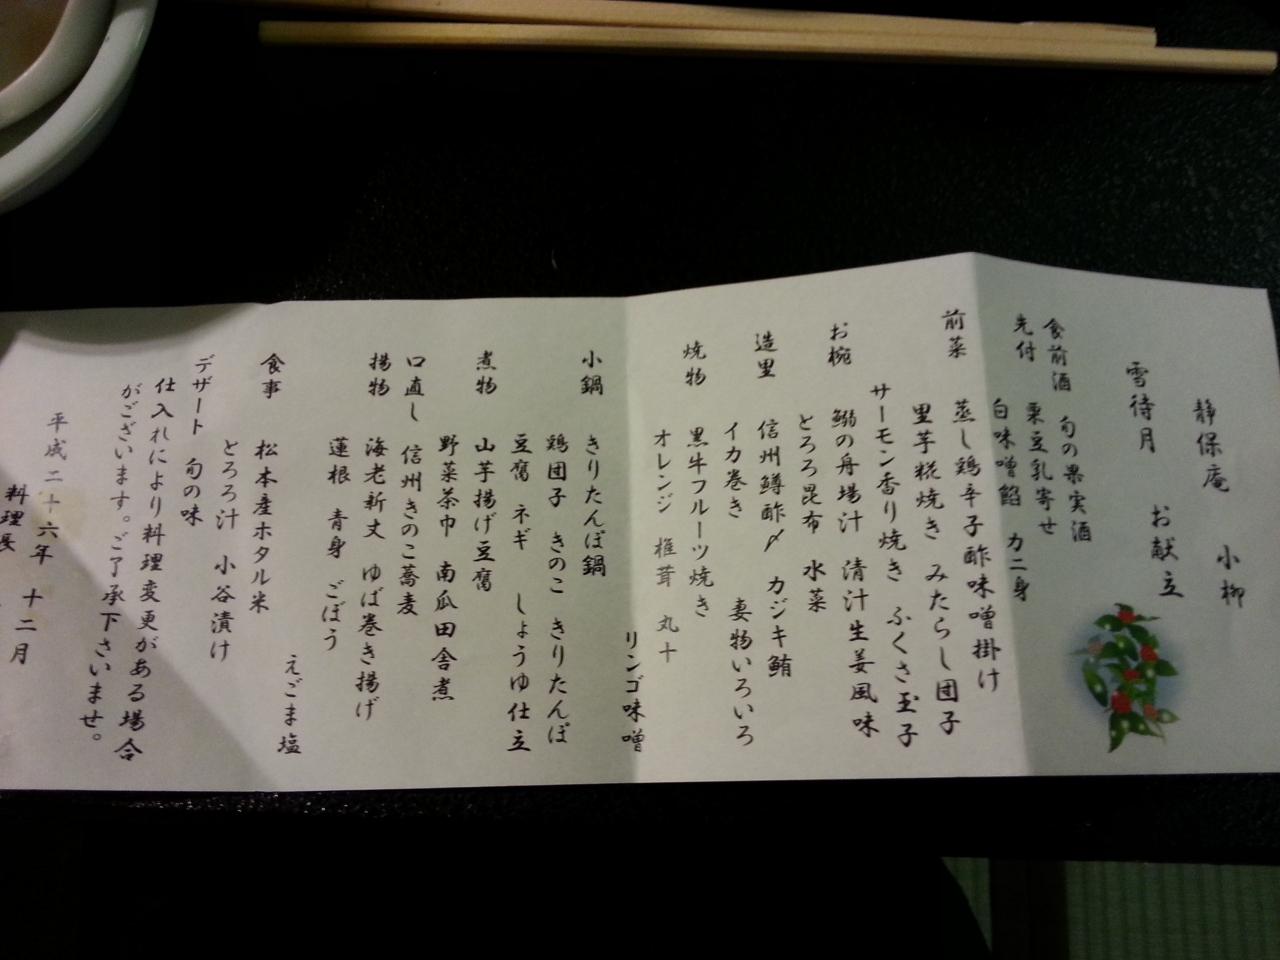 静保庵 小柳
雪待月 お献立
食前酒 旬の果実酒
先付 栗豆乳寄せ
白味噌餡 カニ身
前菜 蒸し鶏辛子酢味噌掛け
里芋糀焼き みたらし団子
サーモン香り焼き ふくさ玉子
お椀 鰯の舟場汁 清汁生姜風味
とろろ昆布 水菜
造里 信州鱒酢〆 カジキ鮪
イカ巻き 妻物いろいろ
焼物 黒牛フルーツ焼き
オレンジ 椎茸 丸十
リンゴ味噌
小鍋 きりたんぽ鍋
鶏団子 きのこ きりたんぽ
豆腐 ネギ しょうゆ仕立
煮物 山芋揚げ豆腐
野菜茶巾 南瓜田舎煮
口直し 信州きのこ蕎麦
揚物 海老新丈 ゆば巻き揚げ
蓮根 青身 ごぼう
えごま塩
食事 松本産ホタル米
とろろ汁 小谷漬け
デザート 旬の味
仕入れにより料理変更がある場合
がございます。ご了承下さいませ。
平成二十六年 十二月
料理長